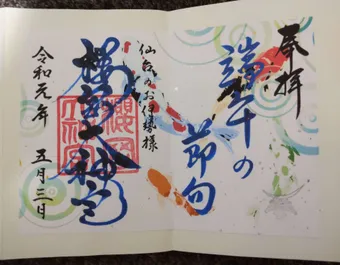 奉拝
端午の
節句
仙台のお伊勢様
櫻岡大神宮
令和元年 五月三日